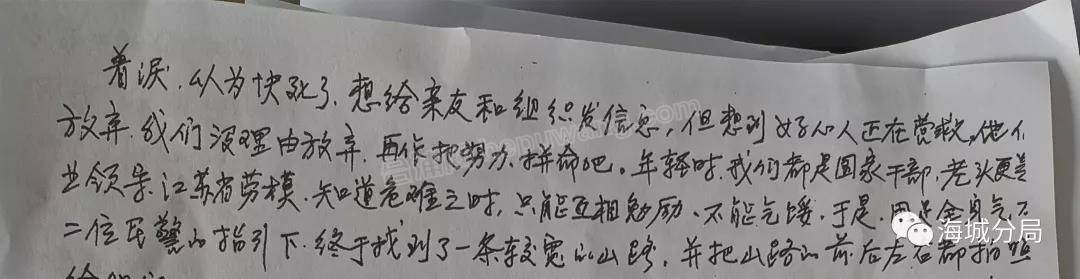 着泪,以为快死了,想给亲友和组织发信息,但想到好心人正在营救,他们
放弃,我们没理由放弃,再作把努力,拼命吧。年轻时,我们都是国家干部,老头更是
业领导,江苏省劳模,知道危难之时,只能互相勉励,不能气馁,于是,用足全身气
二位民警的指引下,终于找到了一条较宽的山路,并把山路的前后左右都拍照
海城分局